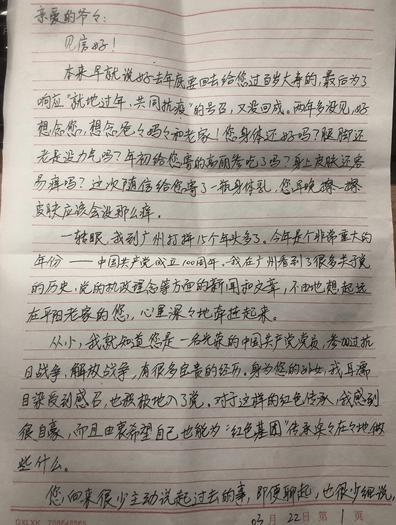 亲爱的爷々：
见信好！
本来早就说好去年底要回去给您过百岁大寿的，最后为了
响应“就地过年，共同抗疫”的号召，又没回成。两年多没见，好
想念您，想念爸々妈々和老家！您身体还好吗？腿脚还
老是没力气吗？年初给您寄的高丽参吃了吗？身上皮肤还容
易痒吗？这次随信给您寄了一瓶身体乳，您早晚擦一擦
皮肤应该会没那么痒。
一转眼，我到广州打拼15个年头了。今年是个非常重大的
年份——中国共产党成立100周年。我在广州看到了很多关于党
的历史，党的执政理念等方面的新闻和文章，不由地想起远
在平阳老家的您，心里深々地牵挂起来。
从小，我就知道您是一名光荣的中国共产党党员，参加过抗
日战争，解放战争，有很多宝贵的经历。身为您的孙女，我耳濡
目染受到感召，也积极地入了党。对于这样的红色传承，我感到
很自豪，而且由衷希望自己也能为“红色基因”传承实々在々地做
些什么。
您向来很少主动说起过去的事，即便聊起，也很少细说，
03月22日第1页